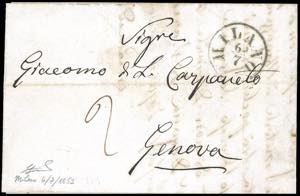 Sigre
Giacomo di L. Carpaneto
2
Genova
MILANO
Milano 6/7/1853